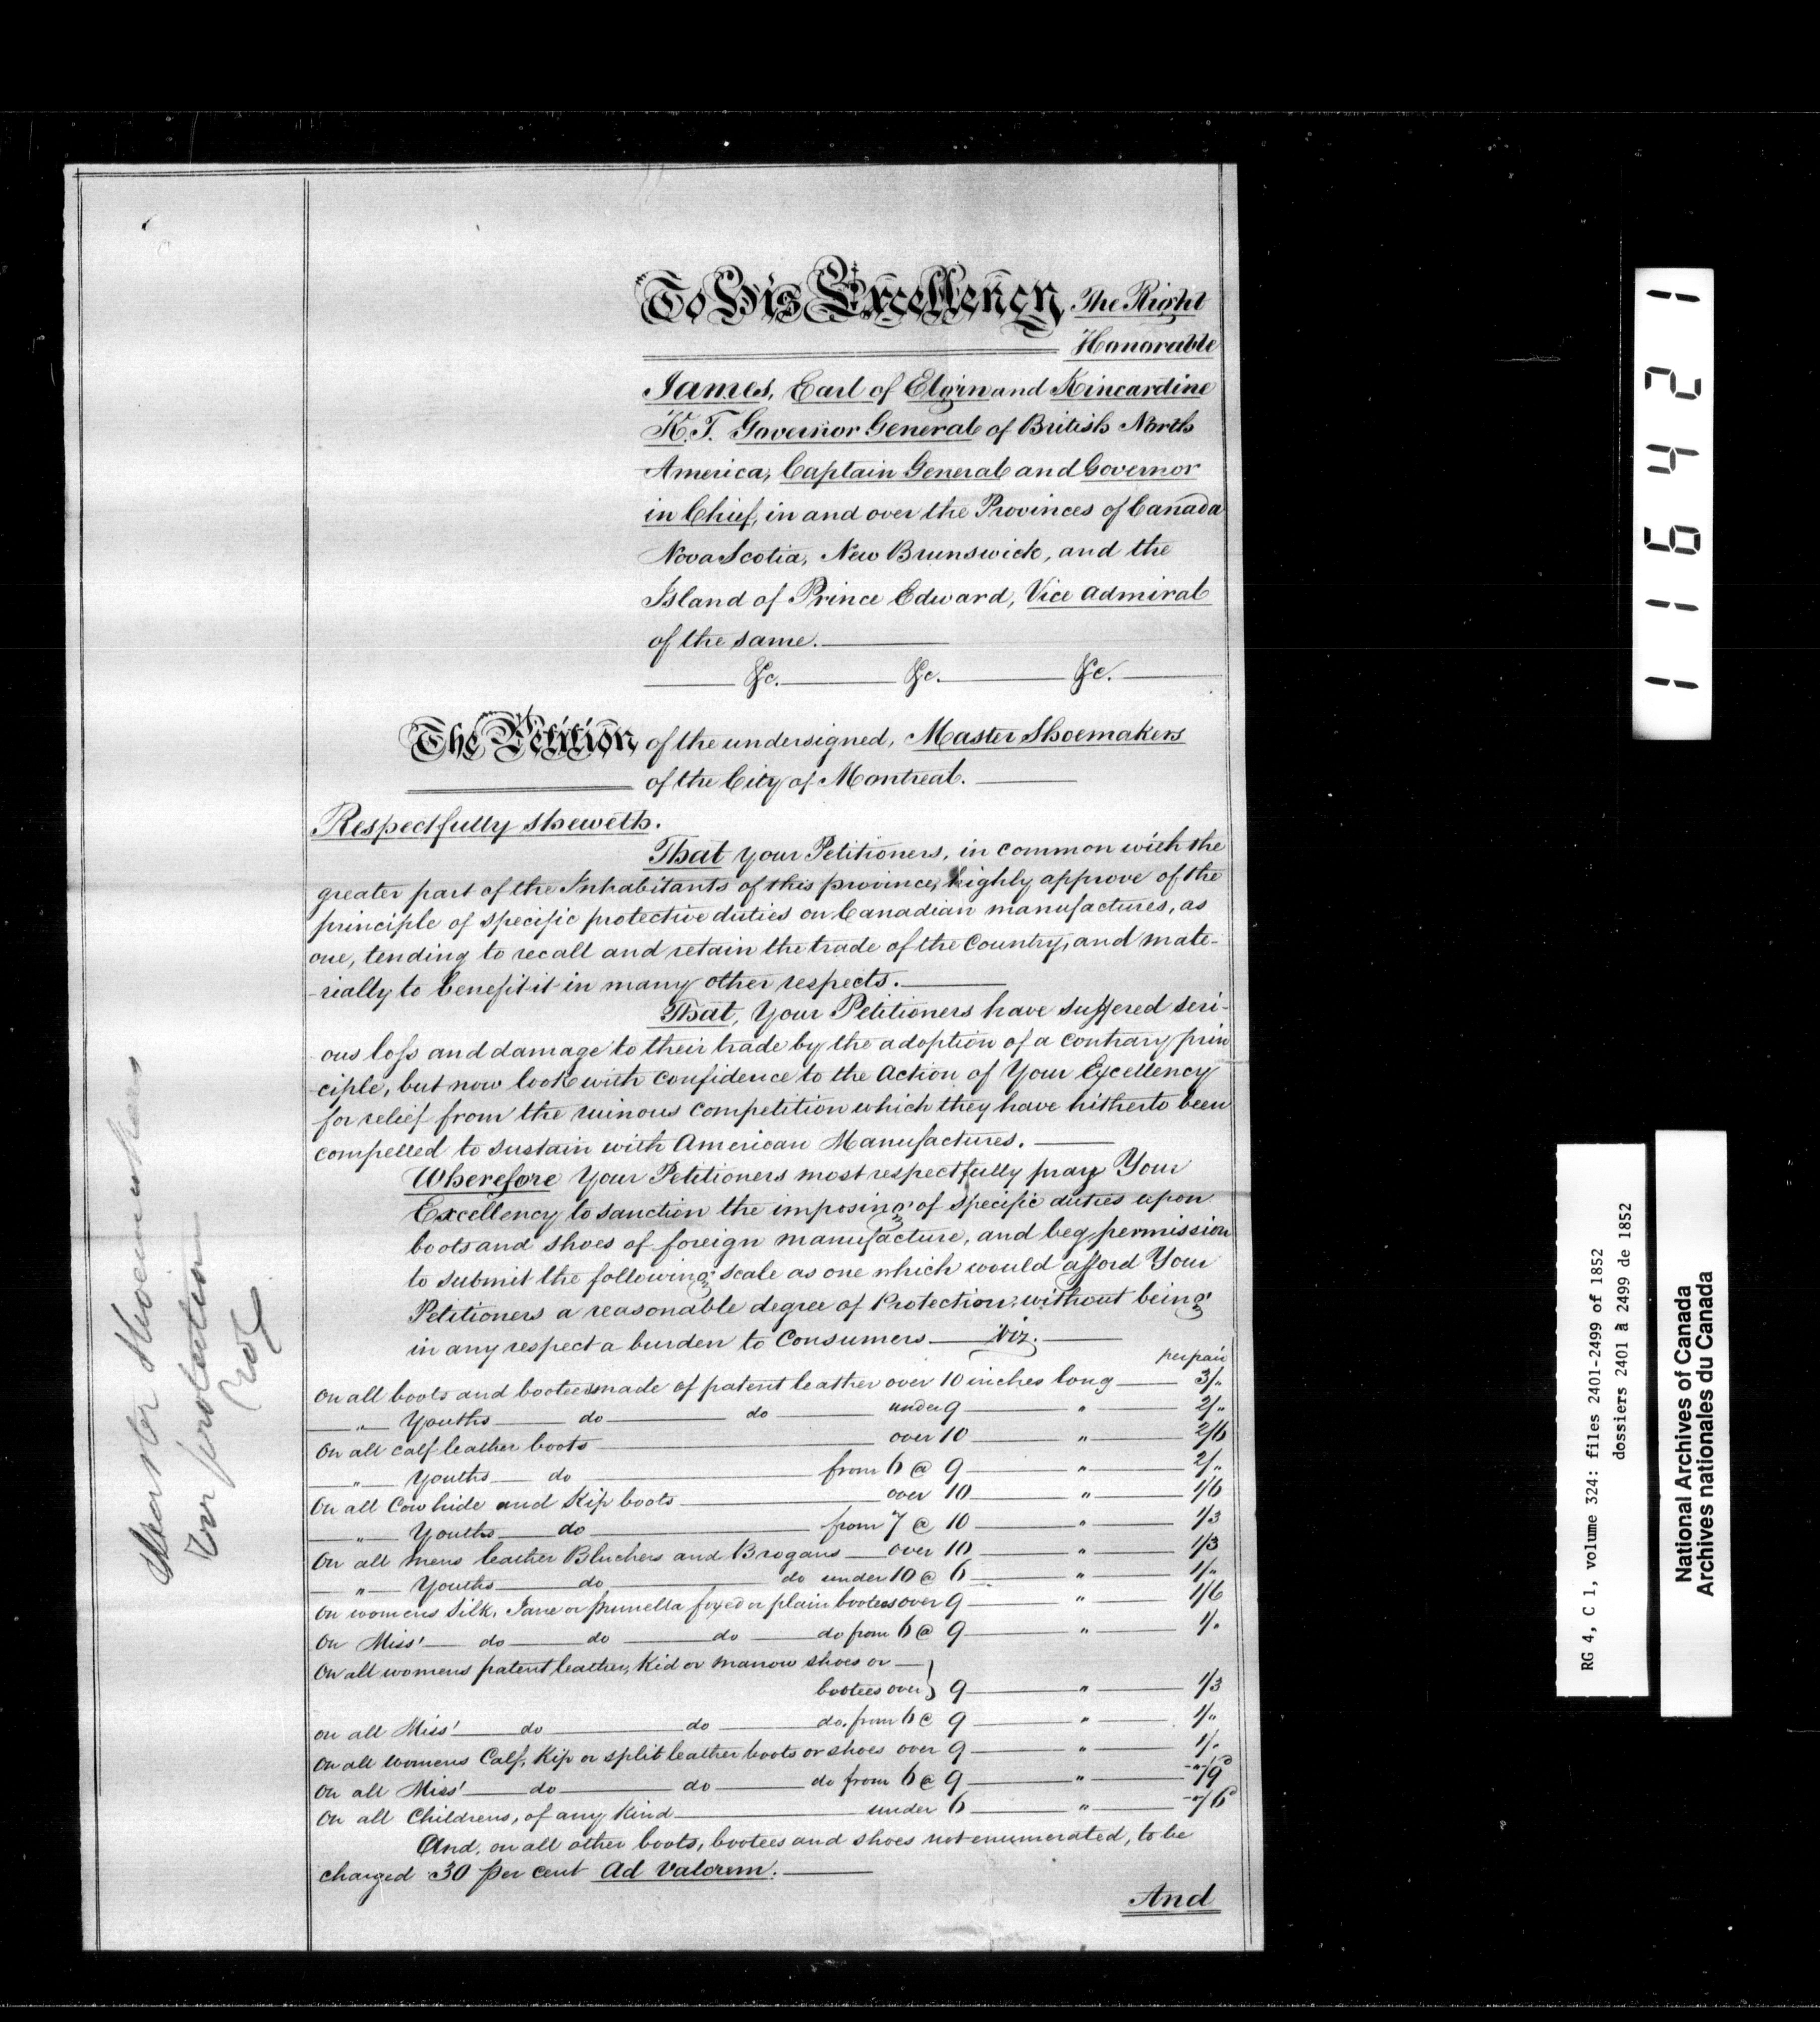 To His Excellency The Right
Honorable
James, Earl of Elgin and Kincardine
K.T. Governor General of British North
America, Captain General and Governor
in Chief, in and over the Provinces of Canada
Nova Scotia, New Brunswick, and the
Island of Prince Edward, Vice Admiral
of the same.
&c. &c. &c.
The Petition of the undersigned, Master Shoemakers
of the City of Montreal.
Respectfully sheweth.
That your Petitioners, in common with the
greater part of the Inhabitants of this province, highly approve of the
principle of specific protective duties on Canadian manufactures, as
one, tending to recall and retain the trade of the Country, and mate-
-rially to benefit it in many other respects.
That, Your Petitioners have suffered seri-
ous loss and damage to their trade by the adoption of a contrary prin
ciple, but now look with confidence to the Action of Your Excellency
for relief from the ruinous competition which they have hitherto been
compelled to sustain with American Manufactures.
Wherefore Your Petitioners most respectfully pray Your
Excellency to sanction the imposing of specific duties upon
boots and shoes of foreign manufacture, and beg permission
to submit the following scale as one which would afford Your
Petitioners a reasonable degree of Protection, without being
in any respect a burden to Consumers viz.
per pair
On all boots and bootees made of patent leather over 10 inches long 3/"
" Youths do do under 9 " 2/"
On all calf leather boots over 10 " 2/6
" Youths do from 6 @ 9 " 2/"
On all Cow hide and Kip boots over 10 " 1/6
" Youths do from 7 @ 10 " 1/3
On all mens leather Bluchers and Brogans over 10 " 1/3
" Youths do do under 10 @ 6 " 1/"
On womens Silk, Jane or prunella foxed or plain bootees over 9 " 1/6
On Miss' do do do do from 6 @ 9 " 1/"
On all womens patent leather, Kid or marrow shoes or
bootees over } 9 " 1/3
On all Miss' do do do. from 6 @ 9 " 1/"
On all womens Calf, Kip or split leather boots or shoes over 9 " 1/"
On all Miss' do do do from 6 @ 9 " -"/9d
On all Childrens, of any Kind under 6 " -"/6d
And, on all other boots, bootees and shoes not enumerated, to be
charged 30 per cent Ad Valorem.
And
Master Shoemakers
for protection
1 1 6 4 2 1
RG 4, C 1, volume 324: files 2401-2499 of 1852
dossiers 2401 à 2499 de 1852
National Archives of Canada
Archives nationales du Canada